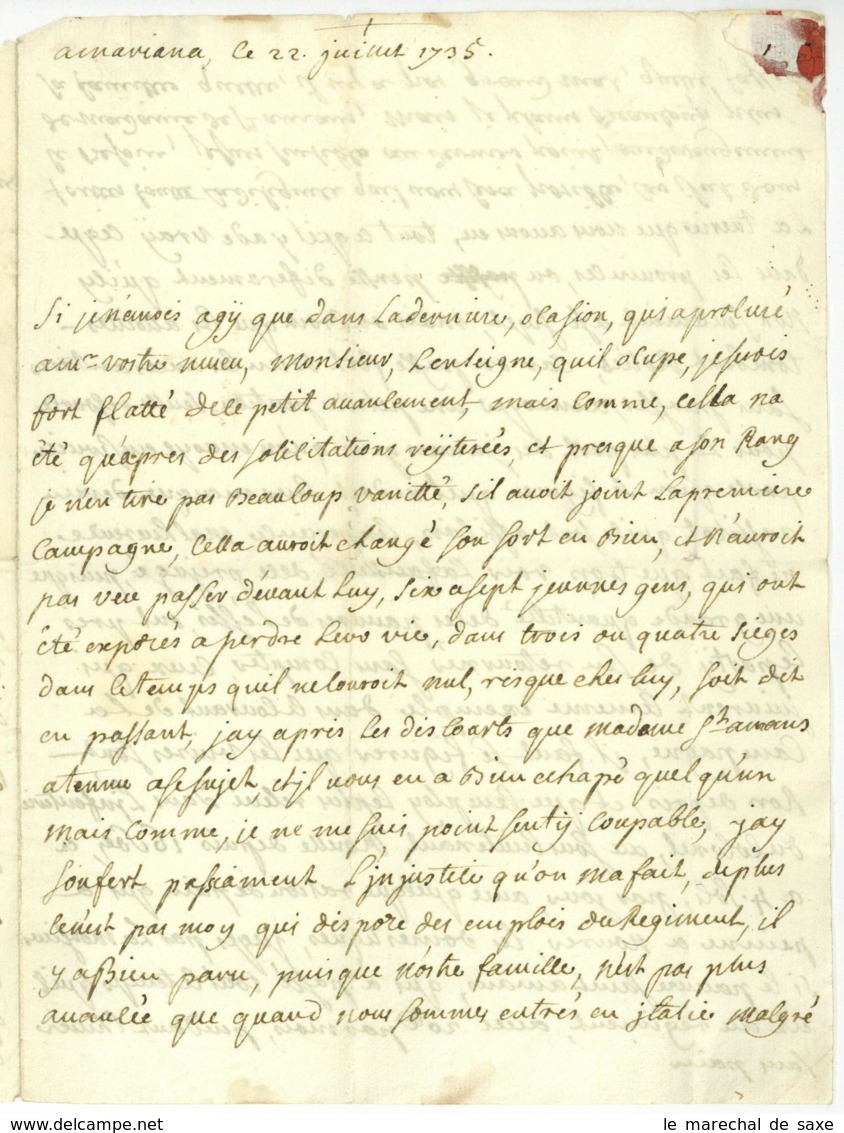 amariana, le 22. juillet 1735.
Si je n'auois agÿ que dans la derniere, ocasion, qui a procuré
a mr vostre neueu, Monsieur, l'enseigne, quil ocupe, je serois
fort flatté de ce petit auancement, mais comme, cella na
été qu'apres des solicitations reÿterées, et presque a son Rang
je n'en tire pas Beaucoup vanitté, sil auoit joint la premiere
Campagne, Cella auroit changé son sort en Bien, et n'auroit
pas veu passer déuant luy, six a sept jeunnes gens, qui ont
été exposés a perdre leur vie, dans trois ou quatre sieges
dans le temps quil ne couroit nul, risque ches luy, soit dit
en passant, jay apris les discourts que madame St amans
a tenue a ce sujet, et jl vous en a Bien echapé quelqu'un
mais comme, je ne me suis point sentÿ coupable, jay
soufert passiament l'jnjustice qu'on ma fait, de plus
ce n'est pas moy qui dispose des emplois du Regiment, il
y a Bien paru, puisque nôstre famille, n'est pas plus
auancée que quand nous sommes entrés en jtalie malgré
le marechal de saxe